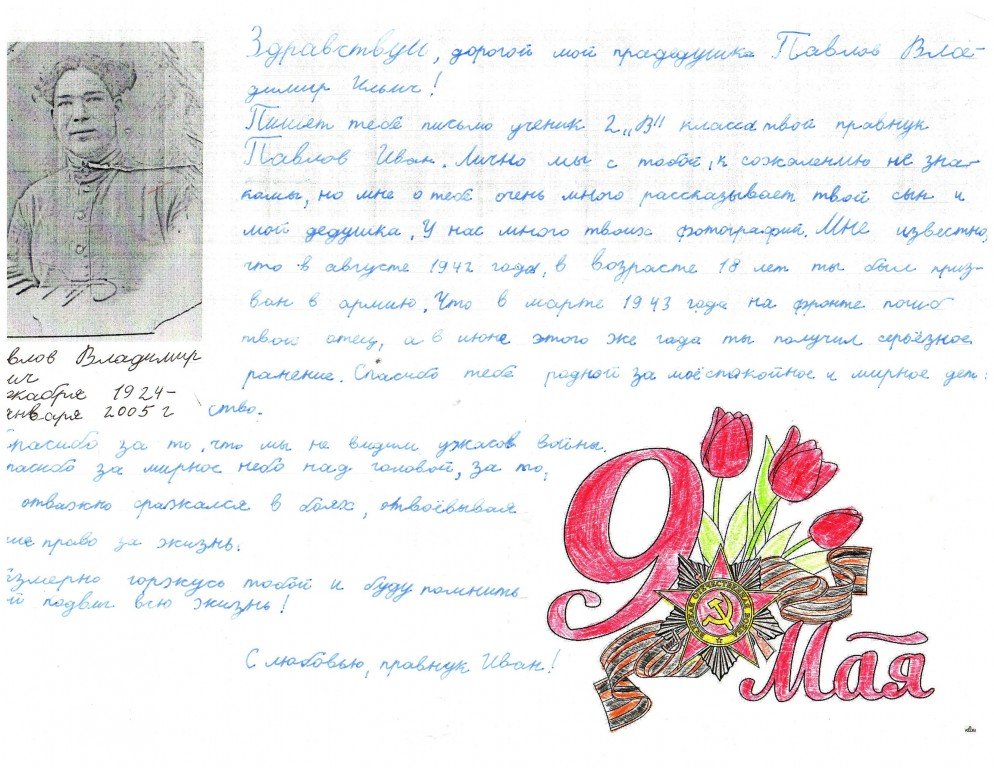 Здравствуй, дорогой мой прадедушка Павлов Вла-
димир Ильич!
Пишет тебе письмо ученик 2 „В" класса твой правнук
Павлов Иван. Лично мы с тобой, к сожалению не зна-
комы, но мне о тебе очень много рассказывает твой сын и
мой дедушка. У нас много твоих фотографий. Мне известно,
что в августе 1942 года, в возрасте 18 лет ты был приз-
ван в армию. Что в марте 1943 года на фронте погиб
твой отец, а в июне этого же года ты получил серьёзное
ранение. Спасибо тебе родной за моё спокойное и мирное дет-
ство.
влов Владимир
ич
екабря 1924-
января 2005 г
Спасибо за то, что мы не видим ужасов войны.
пасибо за мирное небо над головой, за то,
отважно сражался в боях, отвоёвывая
ше право за жизнь.
езмерно горжусь тобой и буду помнить
й подвиг всю жизнь!
С любовью, правнук Иван!
9
Мая
ОТЕЧЕСТВЕННАЯ ВОЙНА